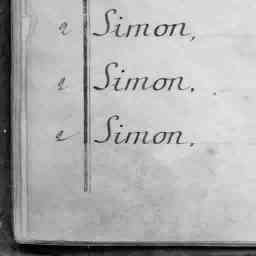 Simon,
Simon.
Simon.